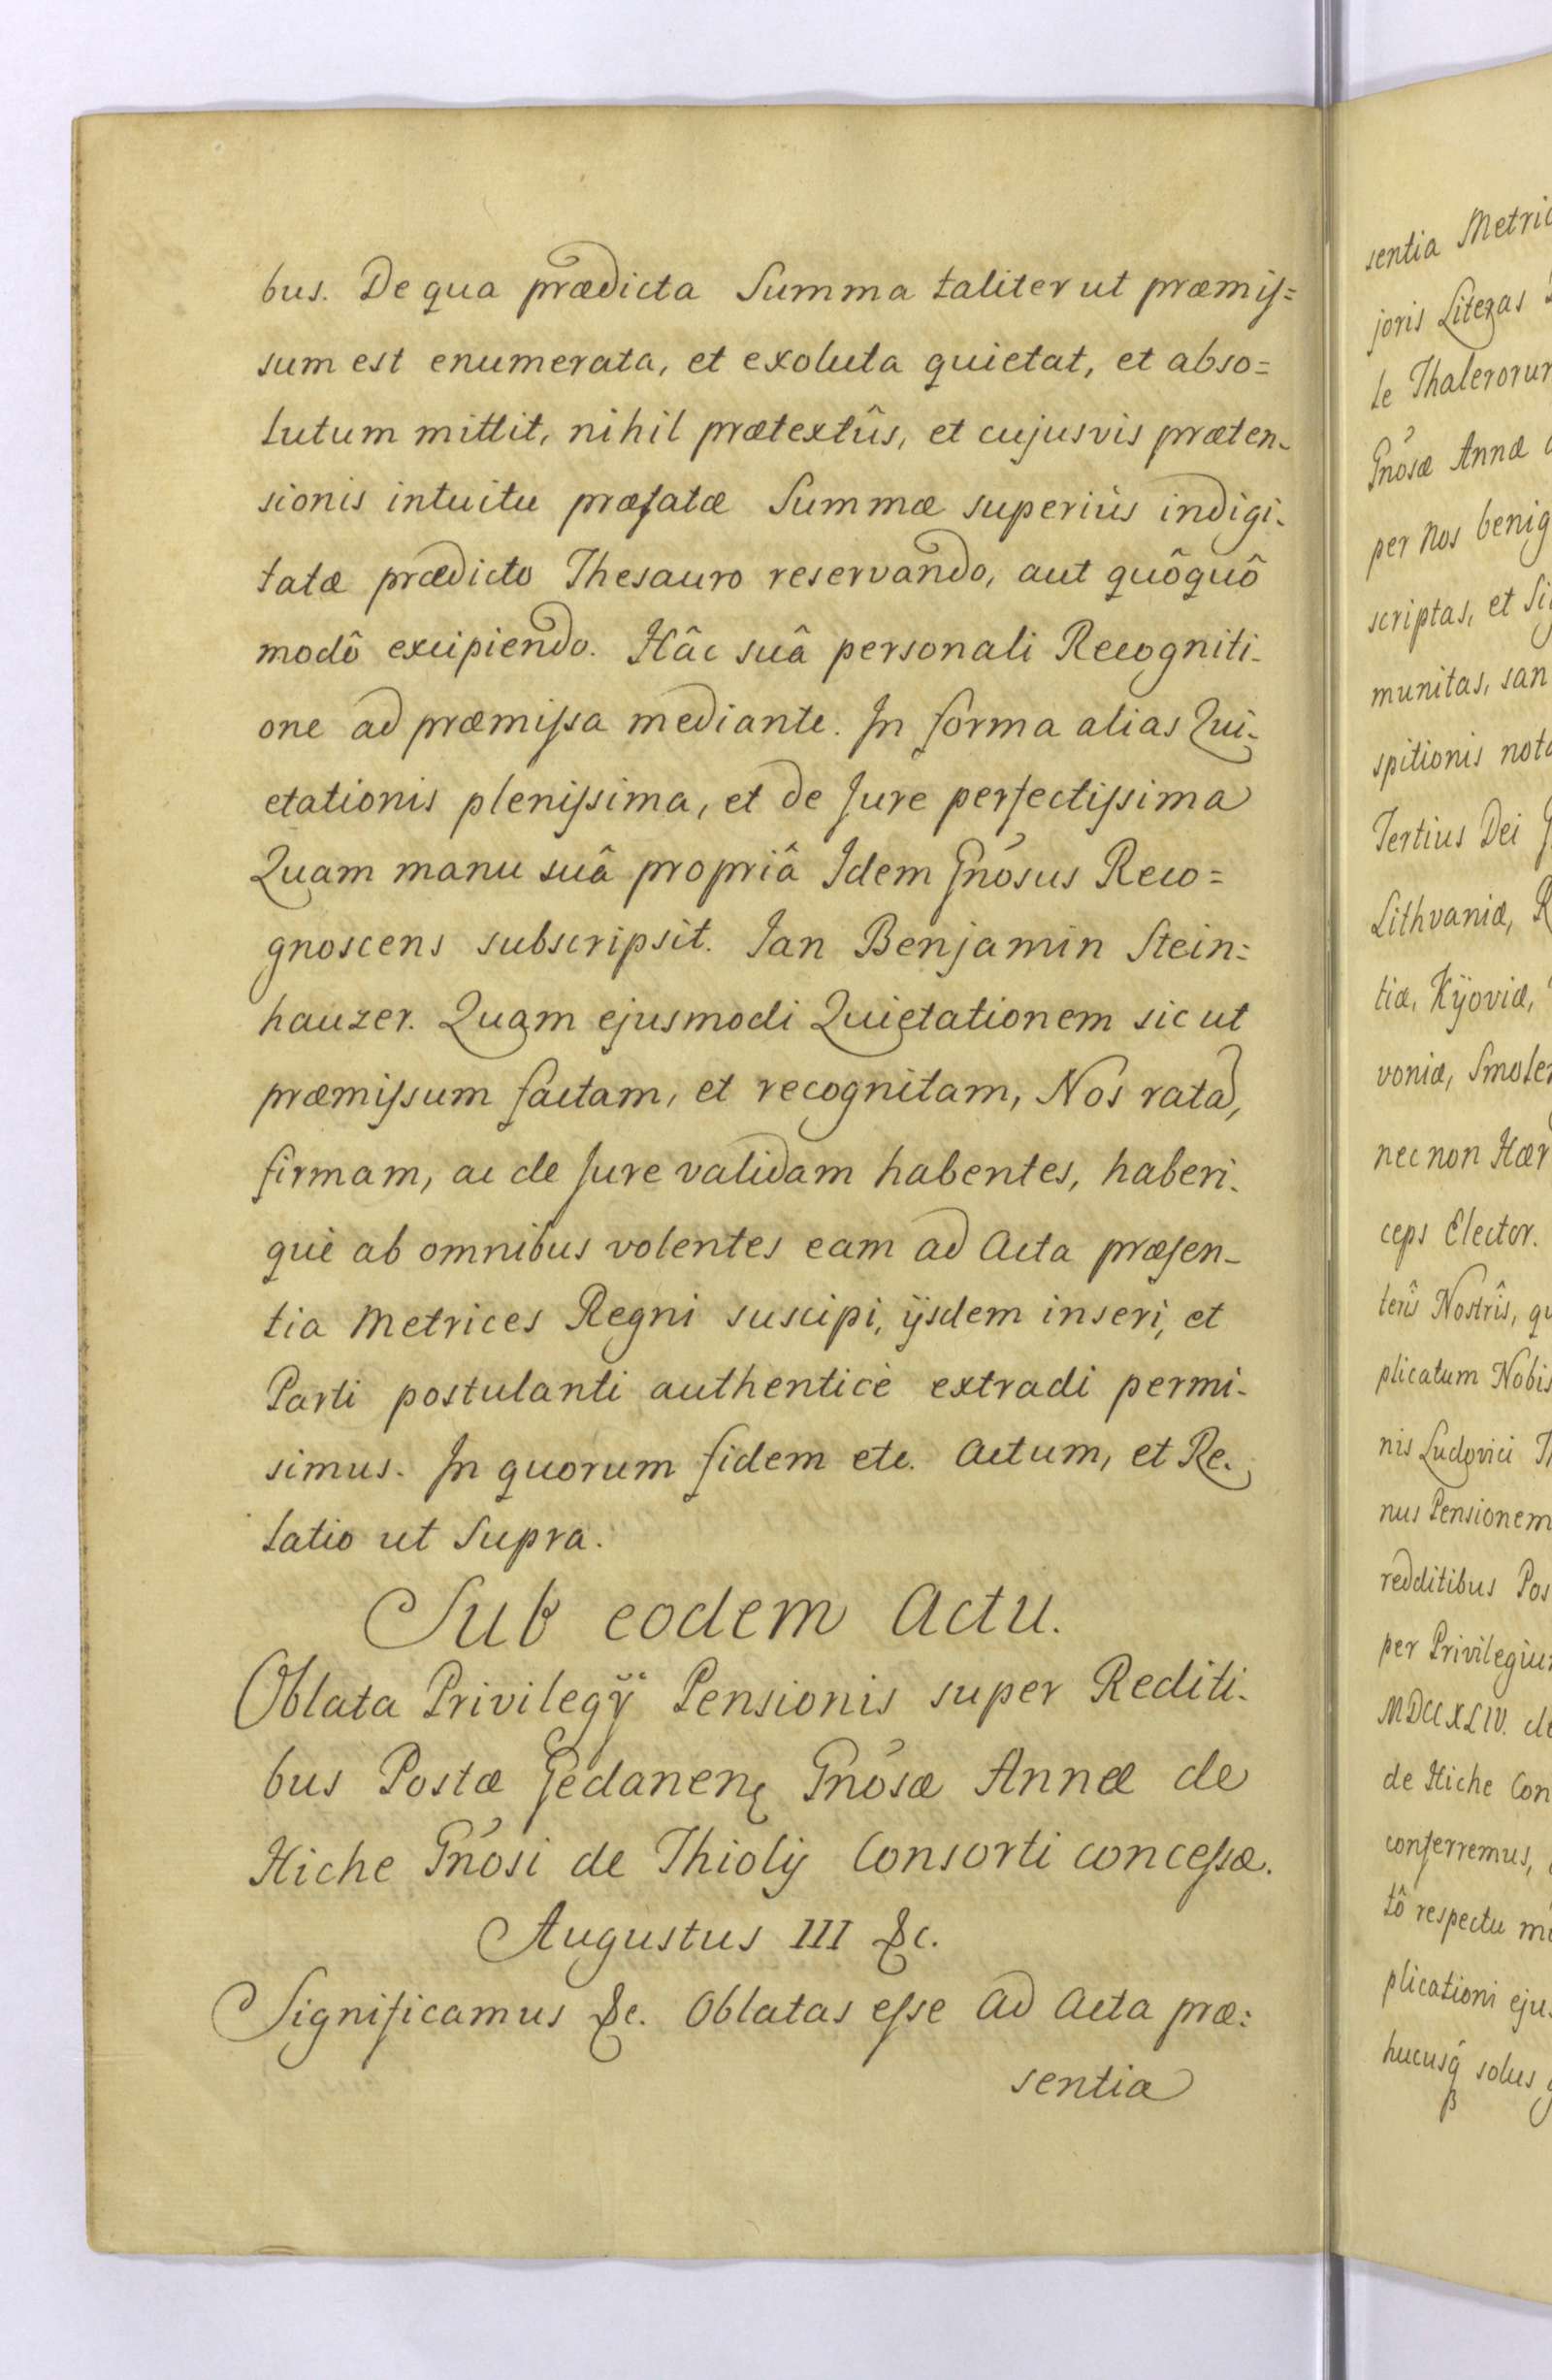 bus. De qua prædicta Summa taliter ut præmis=
sum est enumerata, et exoluta quietat, et abso=
lutum mittit, nihil prætextûs, et cujusvis præten-
sionis intuitu præfatæ Summæ superiùs indigi-
tatæ prædicto Thesauro reservando, aut quôquô
modô excipiendo. Hâc suâ personali Recogniti-
one ad præmissa mediante. In forma alias Qui-
etationis plenissima, et de Jure perfectissima
Quam manu suâ propriâ Idem Gnosus Reco=
gnoscens subscripsit. Jan Benjamin Stein=
hauzer. Quam ejusmodi Quietationem sic ut
præmissum factam, et recognitam, Nos rata,
firmam, ac de Jure validam habentes, haberi-
què ab omnibus volentes eam ad Acta præsen-
tia Metrices Regni suscipi, ijsdem inseri, et
Parti postulanti authenticè extradi permi-
simus. In quorum fidem etc. Actum, et Re-
latio ut Supra.
Sub eodem Actu.
Oblata Privilegij Pensionis super Rediti-
bus Postæ Gedanen. Gnosæ Annæ de
Hiche Gnosi de Thiolij Consorti concessæ.
Augustus III &c.
Significamus &c. Oblatas esse ad Acta præ=
sentia
sentia Metric
joris Literas
le Thalerorum
Gnosæ Annæ
per Nos benig
scriptas, et Si
munitas, san
spitionis nota
Tertius Dei G
Lithvaniæ, R
tiæ, Kijoviæ,
voniæ, Smolen
nec non Hær
ceps Elector.
terîs Nostrîs, qu
plicatum Nobis
nis Ludovici Th
nus Pensionem
redditibus Pos
per Privilegium
MDCCXLIV. de
de Hiche Con
conferremus,
tô respectu mo
plicationi eju
hucusq́ solus